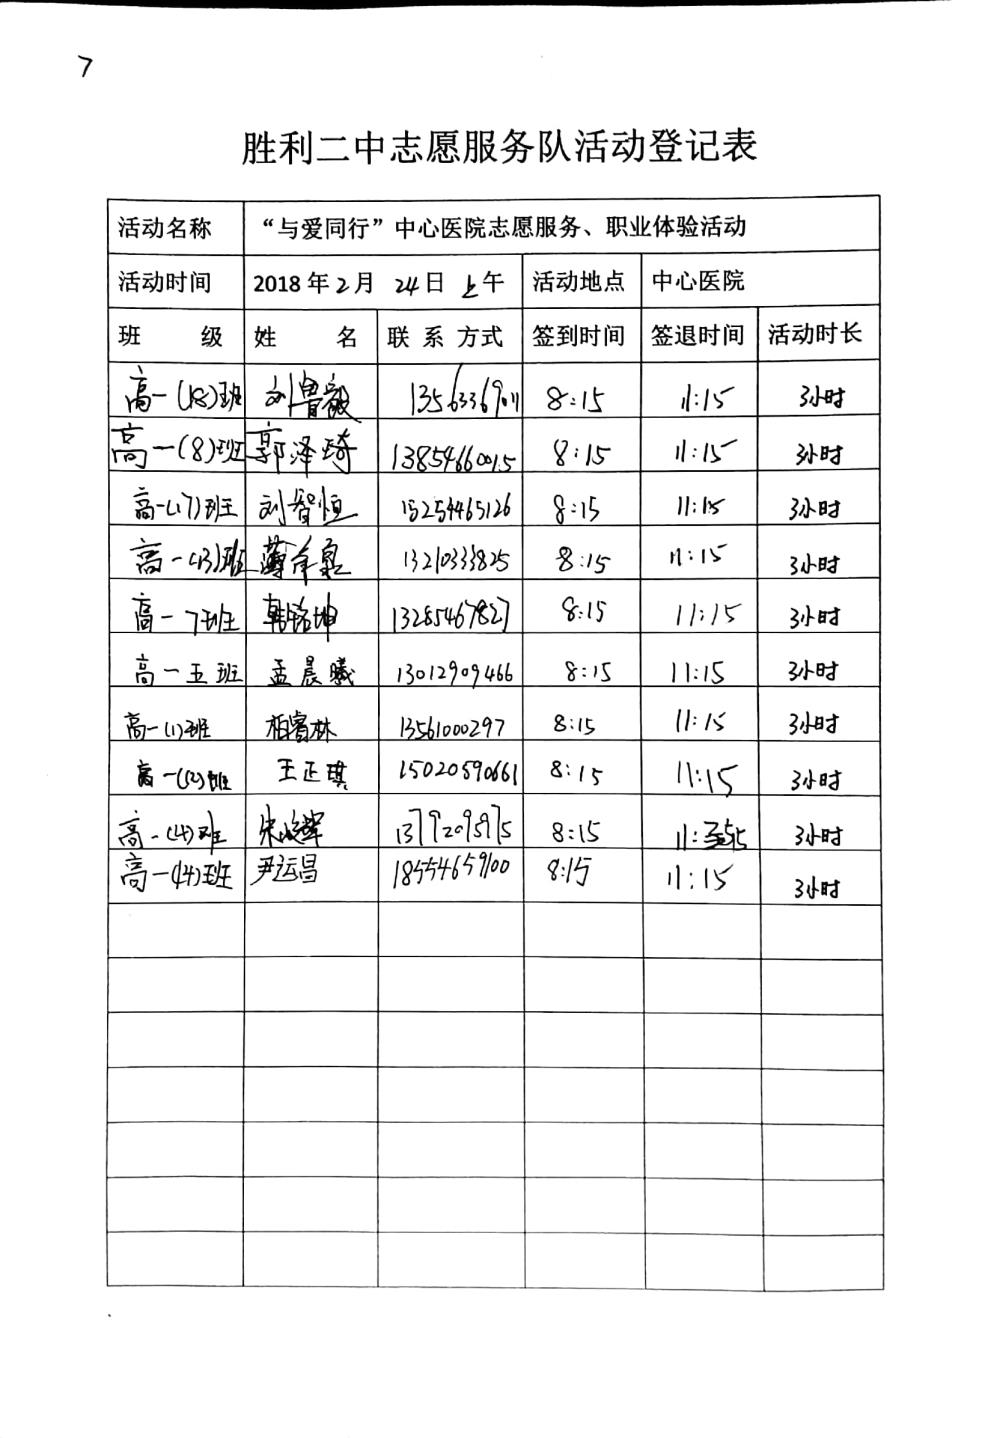 7
胜利二中志愿服务队活动登记表
活动名称 “与爱同行”中心医院志愿服务、职业体验活动
活动时间 2018年2月 24日 上午 活动地点 中心医院
班 级 姓 名 联 系 方式 签到时间 签退时间 活动时长
高一(18)班 刘鲁毅 13563369011 8:15 11:15 3小时
高一(8)班 郭泽琦 13854660015 8:15 11:15 3小时
高一(17)班 刘智恒 15254465126 8:15 11:15 3小时
高一(13)班 13210333825 8:15 11:15 3小时
高一7班 韩铭坤 13285467827 8:15 11:15 3小时
高一五班 孟晨曦 13012909466 8:15 11:15 3小时
高一(1)班 柏睿林 13561000297 8:15 11:15 3小时
高一(12)班 王正琪 15020590661 8:15 11:15 3小时
高一(4)班 13792095975 8:15 11: 3小时
高一(14)班 尹运昌 18554659100 8:15 11:15 3小时